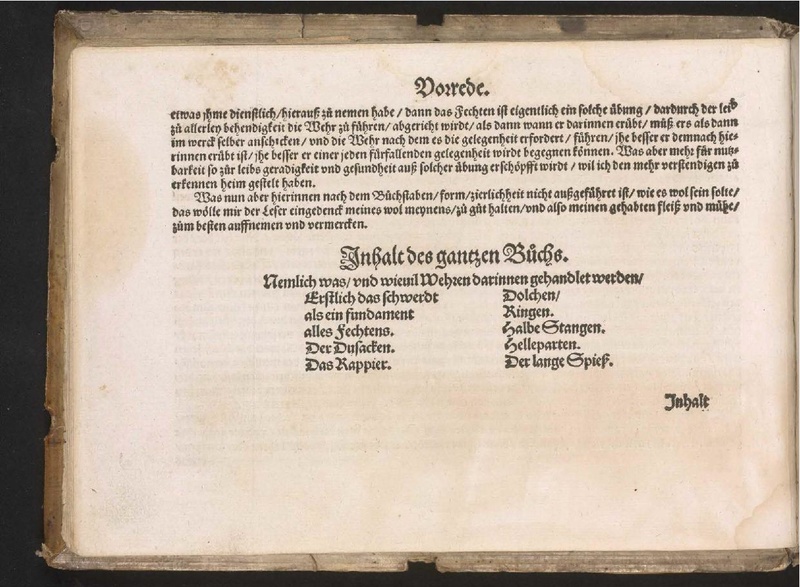 Vorrede.
etwas jhme dienstlich/ hierauß zů nemen habe/ dann das Fechten ist eigentlich ein solche übung/ dardurch der leib
zů allerley behendigkeit die Wehr zů führen/ abgericht wirdt/ als dann wann er darinnen erübt/ můß ers als dann
im werck selber anschicken/ vnd die Wehr nach dem es die gelegenheit erfordert/ führen/ jhe besser er demnach hie-
rinnen erübt ist/ jhe besser er einer jeden fürfallenden gelegenheit wirdt begegnen können. Was aber mehr für nutz-
barkeit so zůr leibs geradigkeit vnd gesundheit auß solcher übung erschöpfft wirdt/ wil ich den mehr verstendigen zů
erkennen heim gestelt haben.
Was nun aber hierinnen nach dem Bůchstaben/ form/ zierlichheit nicht außgeführet ist/ wie es wol sein solte/
das wölle mir der Leser eingedenck meines wol meynens/ zů gůt halten/ vnd also meinen gehabten fleiß vnd mühe/
zům besten auffnemen vnd vermercken.
Inhalt des gantzen Bůchs.
Nemlich was/ vnd wieuil Wehren darinnen gehandlet werden/
Erstlich das schwerdt
als ein fundament
alles Fechtens.
Der Dusacken.
Das Rappier.
Dolchen/
Ringen.
Halbe Stangen.
Helleparten.
Der lange Spieß.
Inhalt